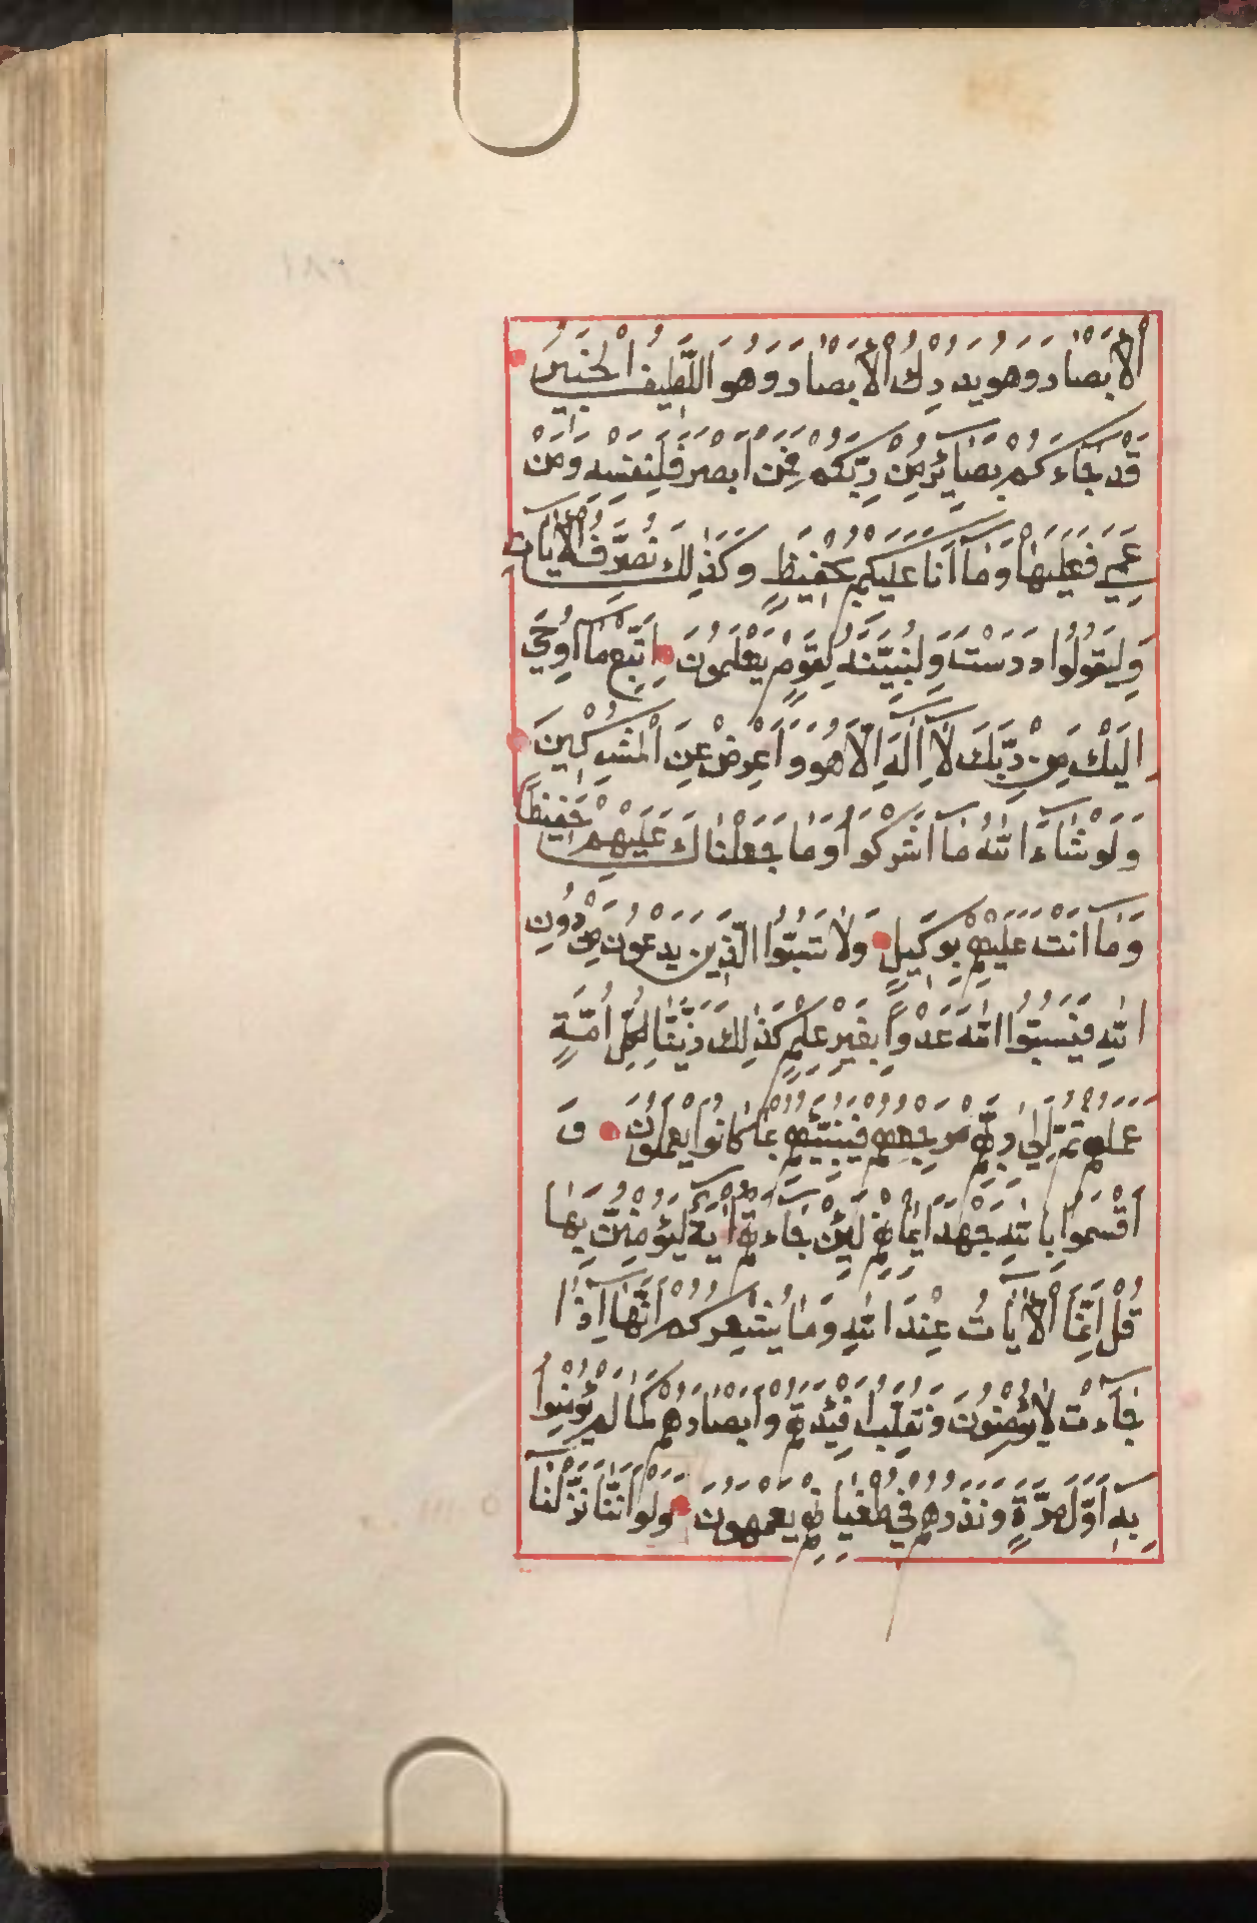 الْأَبْصَارُ وَهُوَ يُدْرِكُ الْأَبْصَارَ وَهُوَ اللَّطِيفُ الْخَبِيرُ
قَدْ جَاءَكُمْ بَصَائِرُ مِنْ رَبِّكُمْ فَمَنْ أَبْصَرَ فَلِنَفْسِهِ وَمَنْ
عَمِيَ فَعَلَيْهَا وَمَا أَنَا عَلَيْكُمْ بِحَفِيظٍ وَكَذَٰلِكَ نُصَرِّفُ الْآيَاتِ
وَلِيَقُولُوا دَرَسْتَ وَلِنُبَيِّنَهُ لِقَوْمٍ يَعْلَمُونَ اتَّبِعْ مَا أُوحِيَ
إِلَيْكَ مِنْ رَبِّكَ لَا إِلَٰهَ إِلَّا هُوَ وَأَعْرِضْ عَنِ الْمُشْرِكِينَ
وَلَوْ شَاءَ اللَّهُ مَا أَشْرَكُوا وَمَا جَعَلْنَاكَ عَلَيْهِمْ حَفِيظًا
وَمَا أَنْتَ عَلَيْهِمْ بِوَكِيلٍ وَلَا تَسُبُّوا الَّذِينَ يَدْعُونَ مِنْ دُونِ
اللَّهِ فَيَسُبُّوا اللَّهَ عَدْوًا بِغَيْرِ عِلْمٍ كَذَٰلِكَ زَيَّنَّا لِكُلِّ أُمَّةٍ
عَمَلَهُمْ ثُمَّ إِلَىٰ رَبِّهِمْ مَرْجِعُهُمْ فَيُنَبِّئُهُمْ بِمَا كَانُوا يَعْمَلُونَ وَ
أَقْسَمُوا بِاللَّهِ جَهْدَ أَيْمَانِهِمْ لَئِنْ جَاءَتْهُمْ آيَةٌ لَيُؤْمِنُنَّ بِهَا
قُلْ إِنَّمَا الْآيَاتُ عِنْدَ اللَّهِ وَمَا يُشْعِرُكُمْ أَنَّهَا إِذَا
جَاءَتْ لَا يُؤْمِنُونَ وَنُقَلِّبُ أَفْئِدَتَهُمْ وَأَبْصَارَهُمْ كَمَا لَمْ يُؤْمِنُوا
بِهِ أَوَّلَ مَرَّةٍ وَنَذَرُهُمْ فِي طُغْيَانِهِمْ يَعْمَهُونَ وَلَوْ أَنَّنَا نَزَّلْنَا